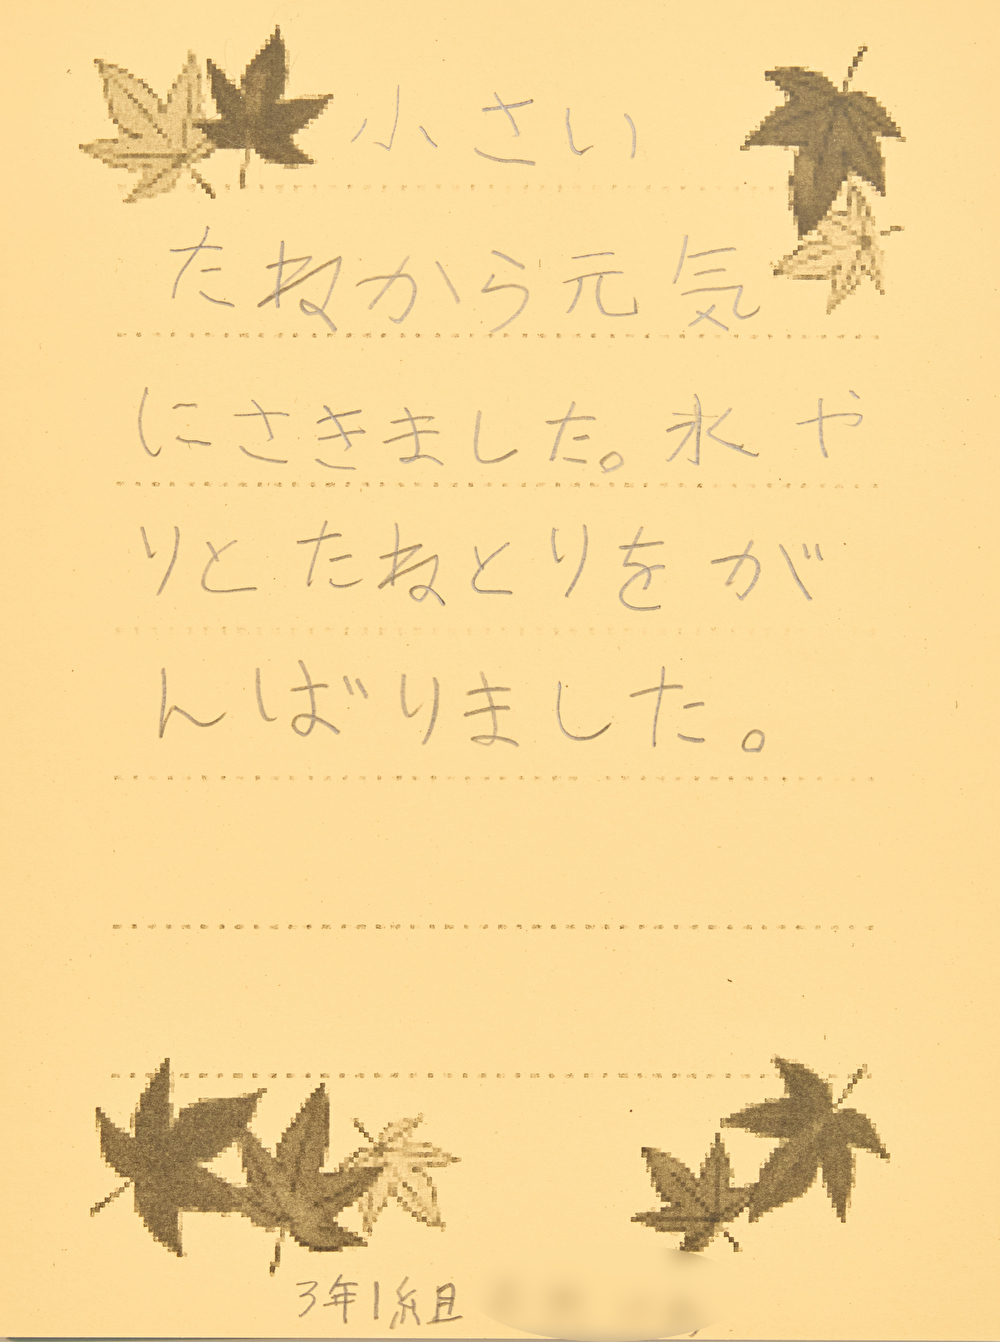 小さい
たねから元気
にさきました。水や
りとたねとりをが
んばりました。
3年1組